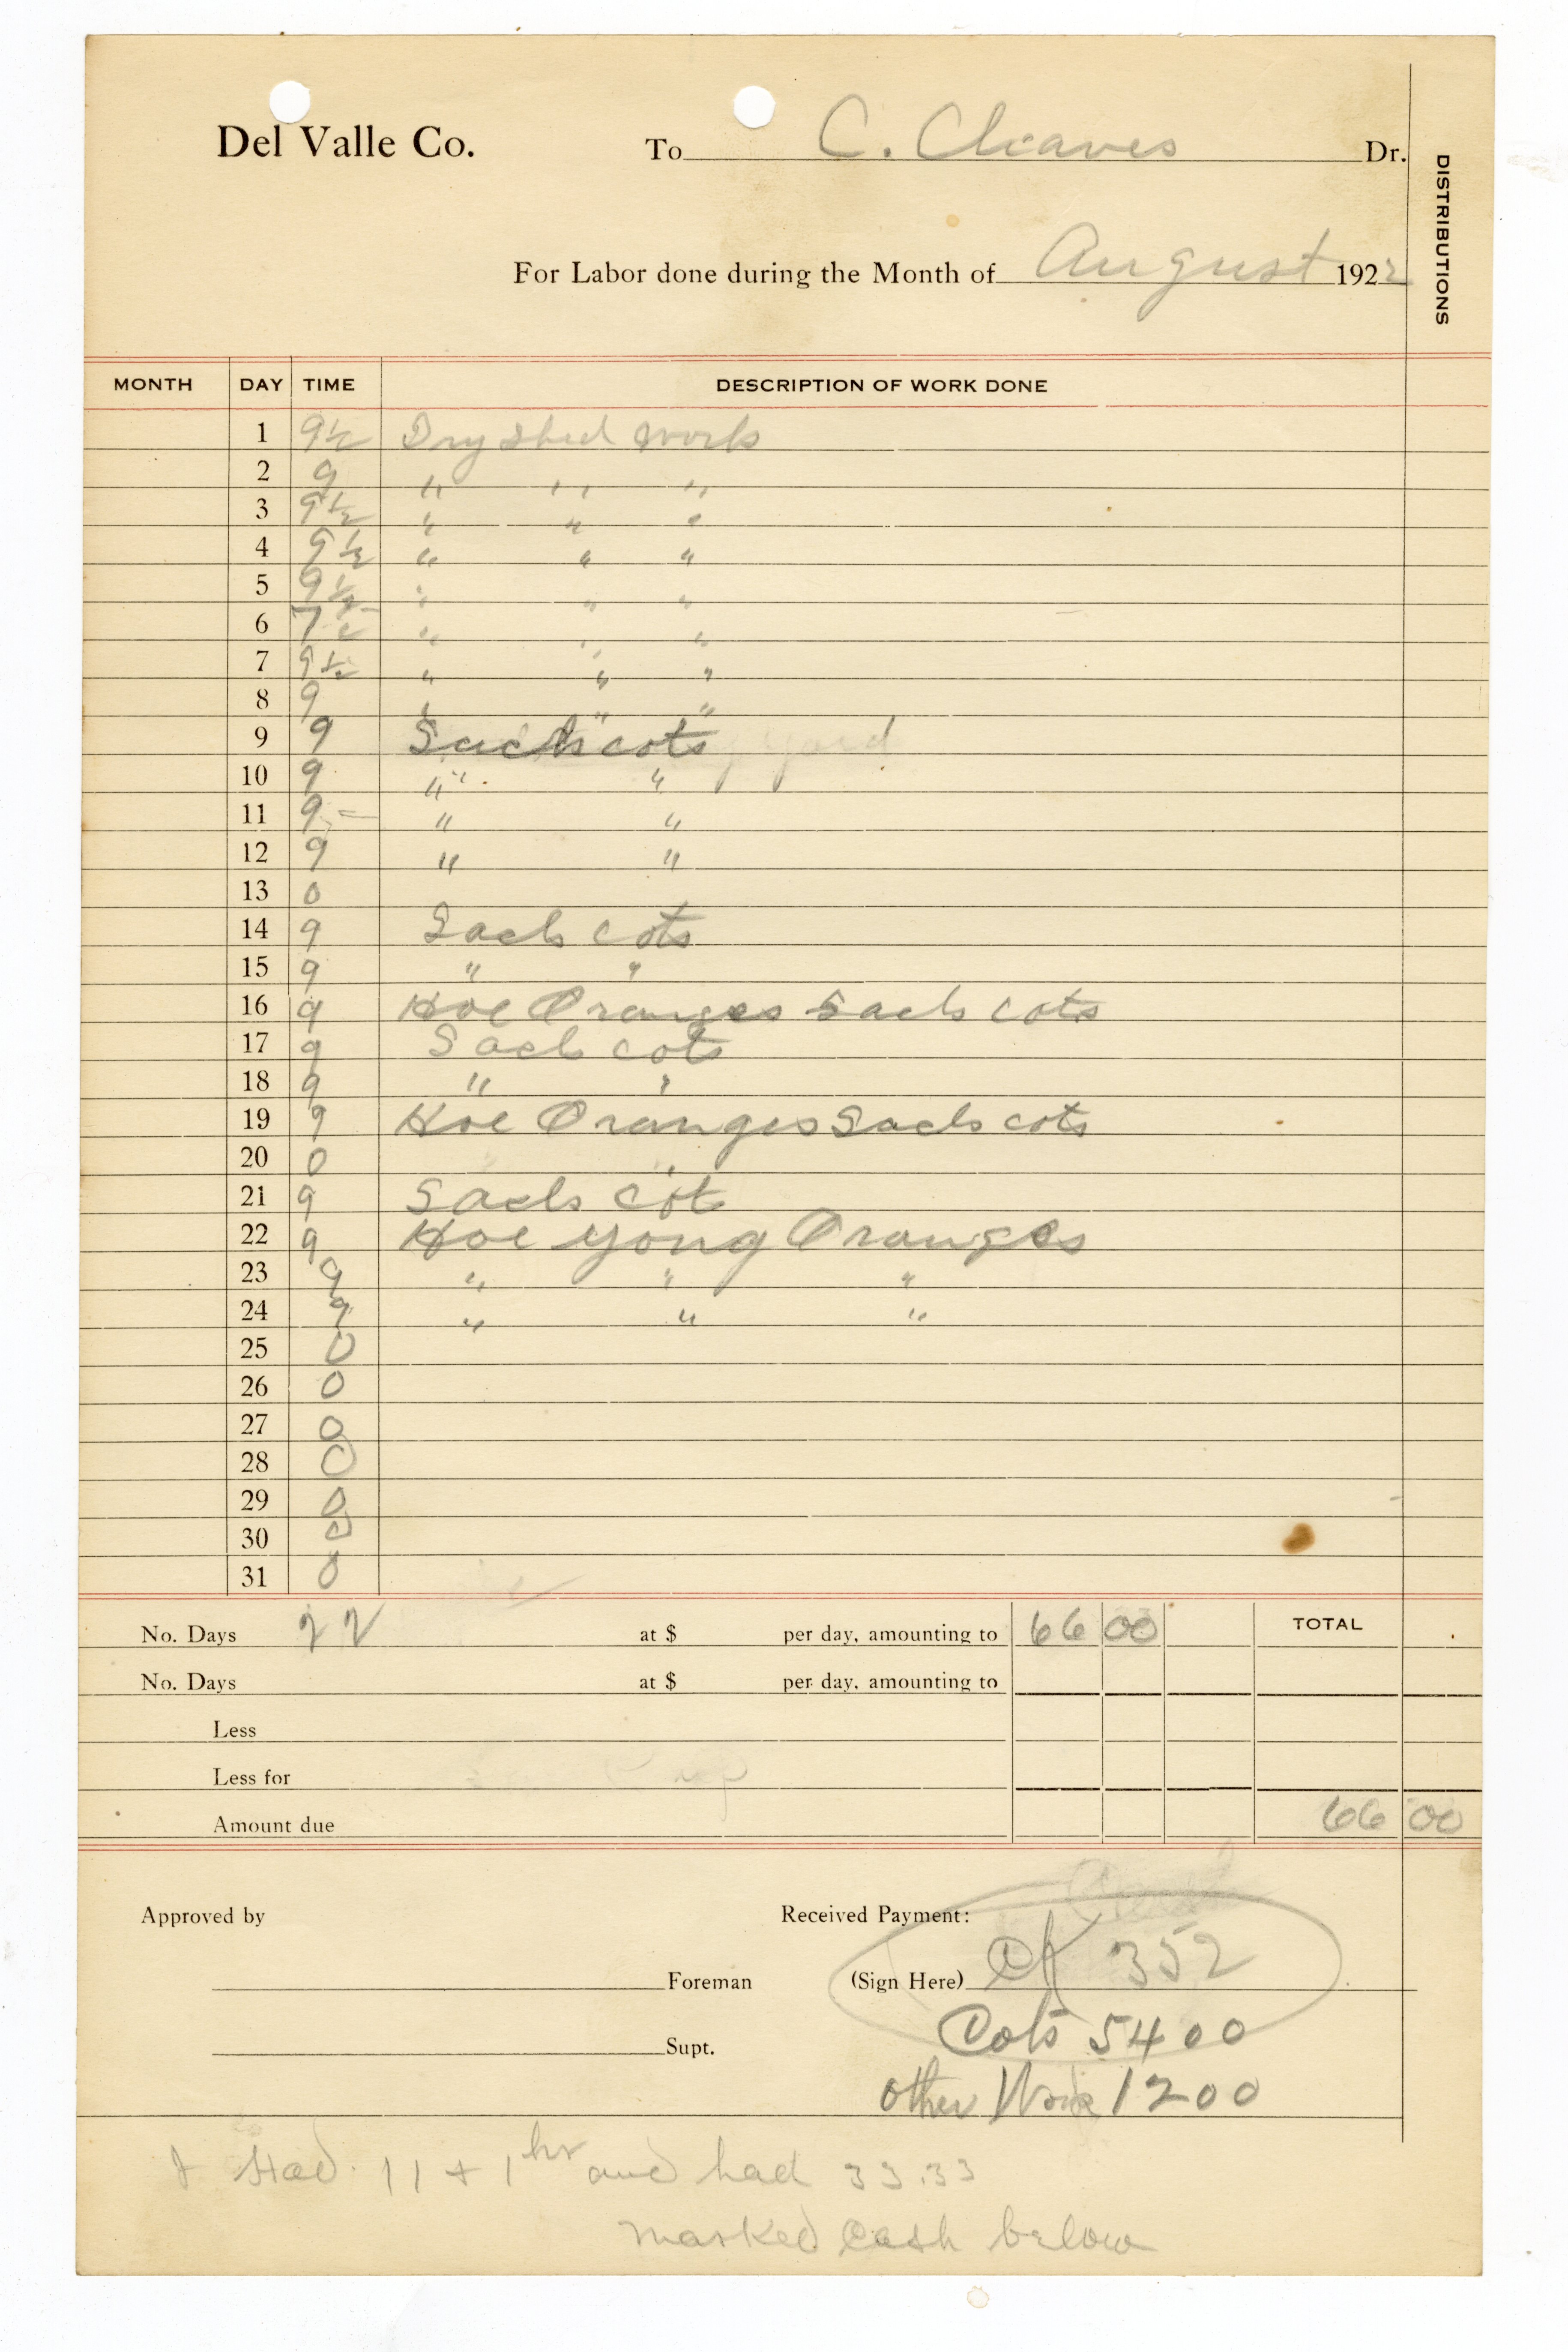 Del Valle Co. To C. Cleaves Dr.
DISTRIBUTIONS
For Labor done during the Month of August 1922
MONTH DAY TIME DESCRIPTION OF WORK DONE
1 9½ Dry Shed Work
2 9 " " "
3 9½ " " "
4 9½ " " "
5 9½ " " "
6 7 " " "
7 9½ " " "
8 9 " " "
9 9 Sack cots yard
10 9 " "
11 9 " "
12 9 " "
13 0
14 9 Sack cots
15 9 " "
16 9 Hoe Oranges Sack cots
17 9 Sack cots
18 9 " "
19 9 Hoe Oranges Sack cots
20 0
21 9 Sack cot
22 9 Hoe yong Oranges
23 9 " " "
24 9 " " "
25 0
26 0
27 0
28 0
29 0
30 0
31 0
No. Days 22 at $ per day, amounting to 66 00 TOTAL
No. Days at $ per day, amounting to
Less
Less for
Amount due 66 00
Approved by Received Payment:
Foreman (Sign Here) CK 352
Cots 5400
Supt.
other Work 1200
I Had 11 + 1 hr and had 33.33
marked Cash below